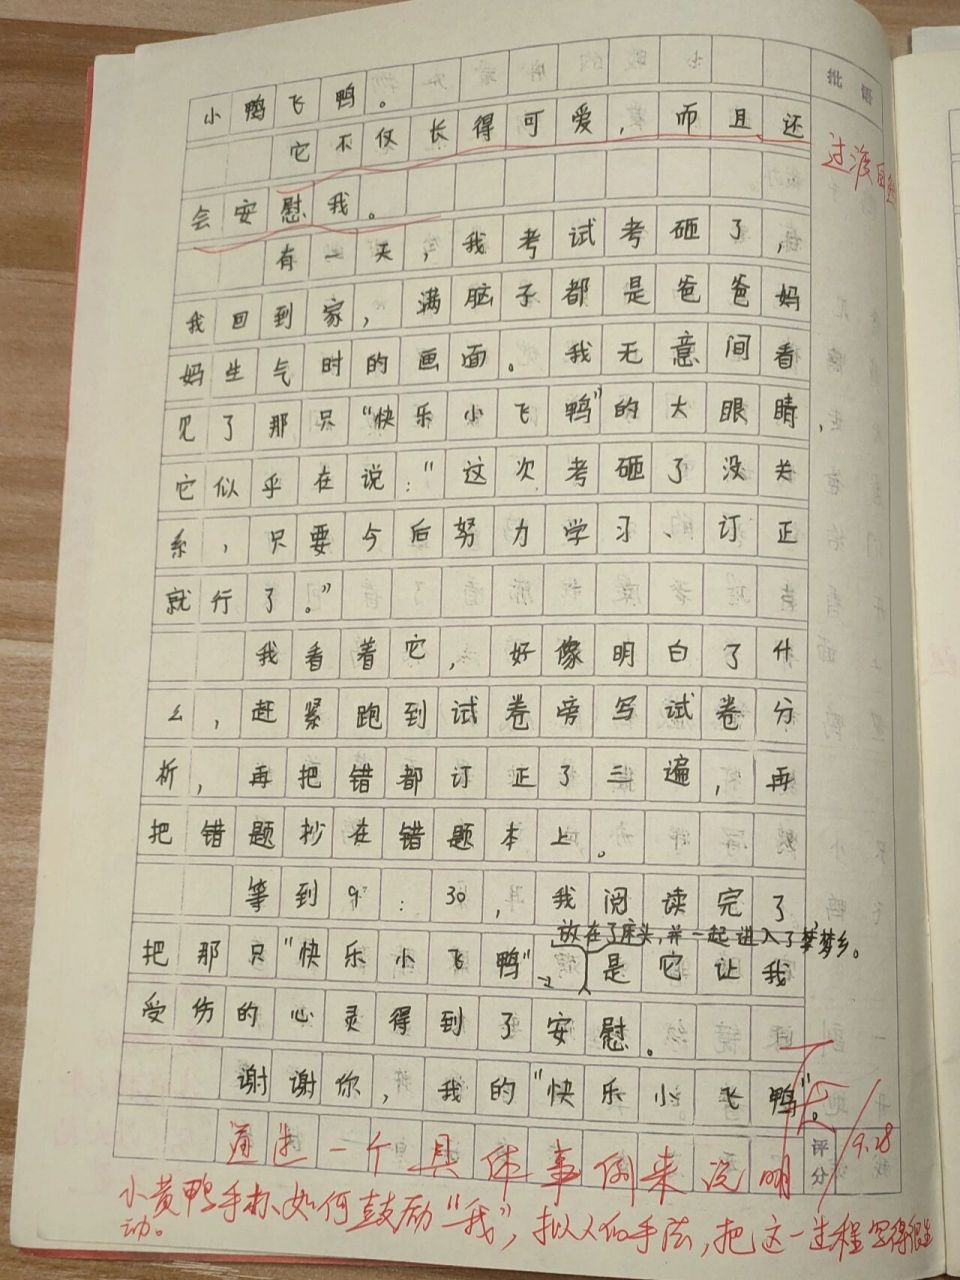 批 语
小鸭飞鸭。
它不仅长得可爱，而且还
过渡自然
会安慰我。
有一天，我考试考砸了，
我回到家，满脑子都是爸爸妈
妈生气时的画面。我无意间看
见了那只“快乐小飞鸭”的大眼睛，
它似乎在说：“这次考砸了没关
系，只要今后努力学习、订正
就行了。”
我看着它，好像明白了什
么，赶紧跑到试卷旁写试卷分
析，再把错都订正了三遍，再
把错题抄在错题本上。
等到9：30，我阅读完了
放在了床头，并一起进入了梦乡。
把那只“快乐小飞鸭”是它让我
受伤的心灵得到了安慰。
谢谢你，我的“快乐小飞鸭”。
评分
9.28
通过一个具体事例来说明
小黄鸭手办如何鼓励“我”，拟人的手法，把这一过程写得很生
动。